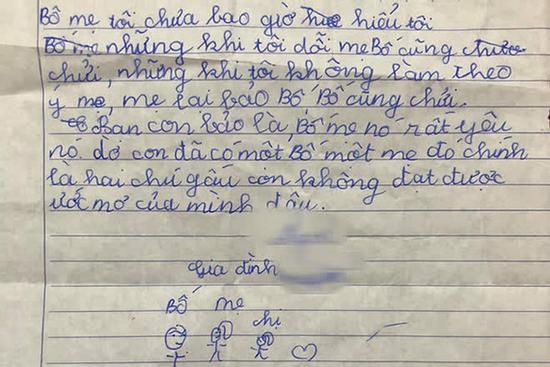 Bố mẹ tôi chưa bao giờ hiểu tôi
Bố mẹ những khi tôi dỗi mẹ Bố cũng
chửi, những khi tôi không làm theo
ý mẹ, mẹ lại bảo Bố Bố cũng chửi.
Bạn con bảo là, Bố mẹ nó rất yêu
nó. dờ con đã có một Bố một mẹ đó chính
là hai chú gấu con không đạt được
ước mơ của mình đâu.
Gia đình
Bố mẹ
chị